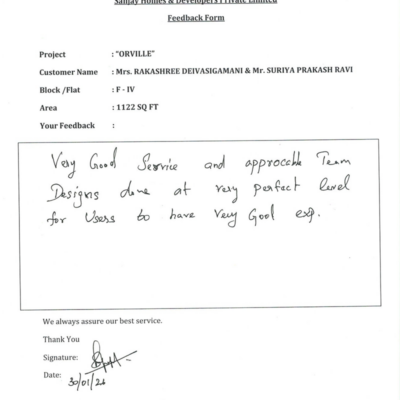 Sanjay Homes & Developers Private Limited
Feedback Form
Project : "ORVILLE"
Customer Name : Mrs. RAKASHREE DEIVASIGAMANI & Mr. SURIYA PRAKASH RAVI
Block /Flat : F - IV
Area : 1122 SQ FT
Your Feedback :
Very Good Service and approcchle Team
Designs done at very perfect level
for Users to have Very Good exp.
We always assure our best service.
Thank You
Signature:
Date: 30/01/21